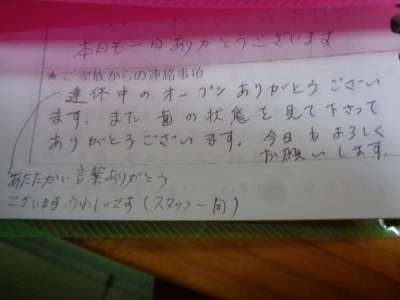 本日も一日ありがとうございます
★ご家族からの連絡事項
連休中のオープンありがとうござい
ます。また歯の状態を見て下さって
ありがとうございます。今日もよろしく
お願いします。
あたたかい言葉ありがとう
ございます。うれしいです(スタッフ一同)